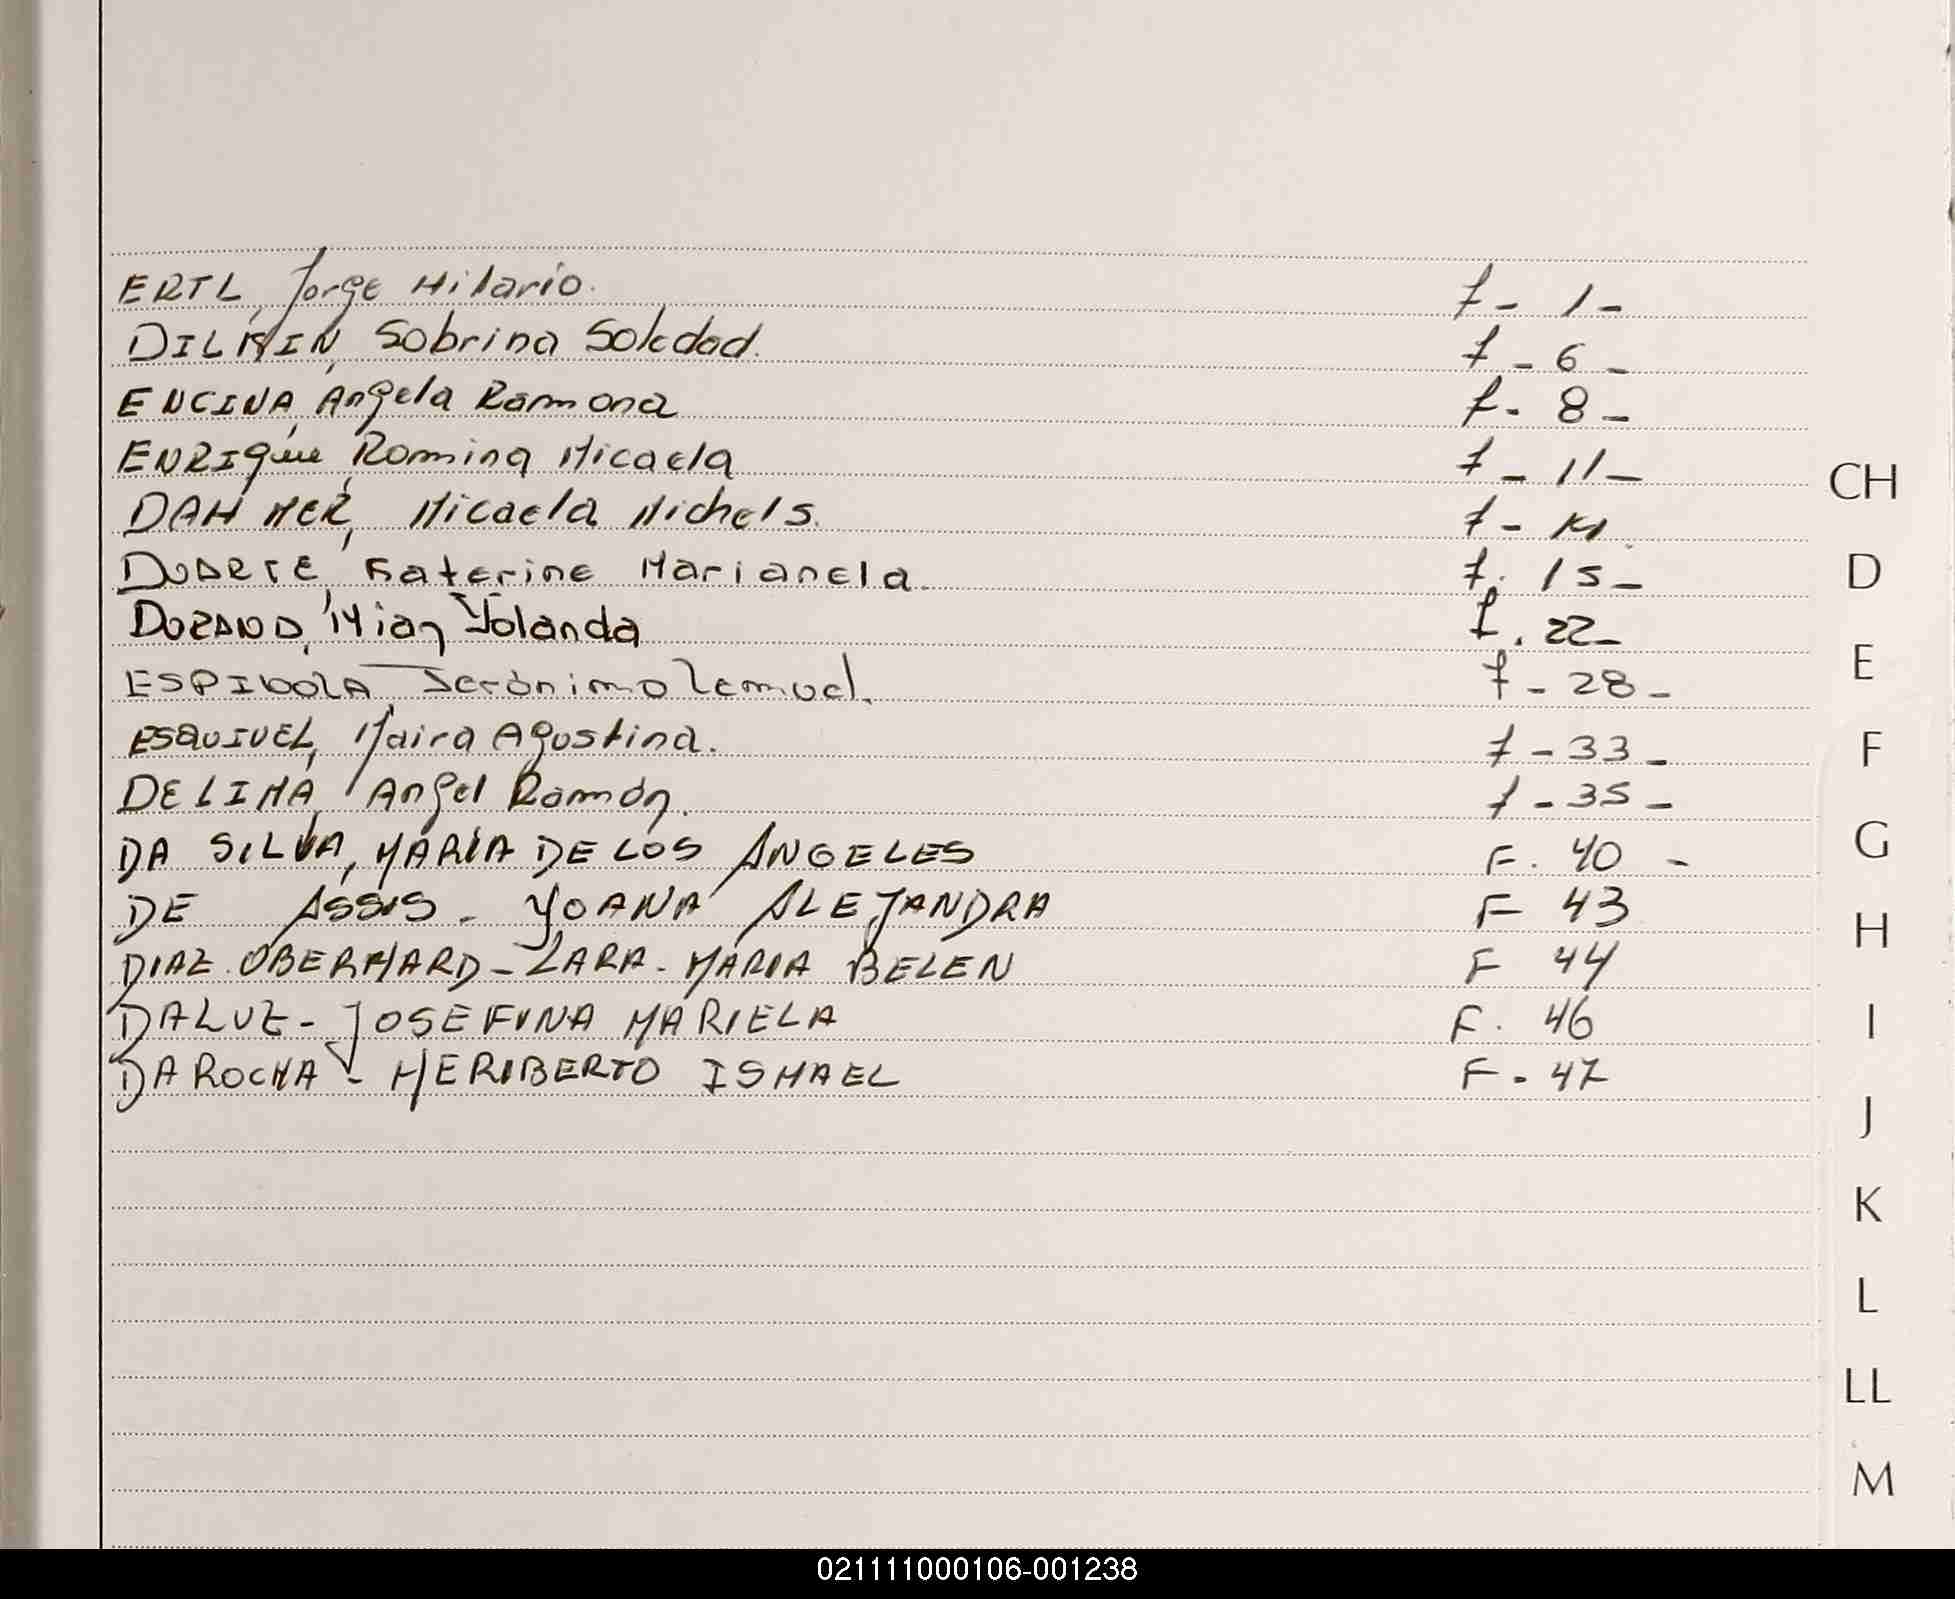 ERTL, Jorge Hilario. f - 1 -
DILKIN, Sabrina Soledad. f - 6 -
ENCINA, Angela Ramona f - 8 -
ENRIque, Romina Micaela f - 11 -
DAHMER, Micaela Michels. f - 14
DUARTE, Katerine Marianela. f. 15 -
DURAND, Mian Yolanda f. 22 -
ESPINDOLA Jerónimo Lemuel. f - 28 -
ESQUIVEL, Maira Agustina. f - 33 -
DELIMA, Angel Ramón. f - 35 -
DA SILVA, MARIA DE LOS ANGELES F. 40 -
DE ASSIS - YOANA ALEJANDRA F 43
DIAZ. OBERHARD - LARA - MARIA BELEN F 44
DALUZ - JOSEFINA MARIELA F. 46
DA ROCHA - HERIBERTO ISMAEL F - 47
CH
D
E
F
G
H
I
J
K
L
LL
M
021111000106-001238